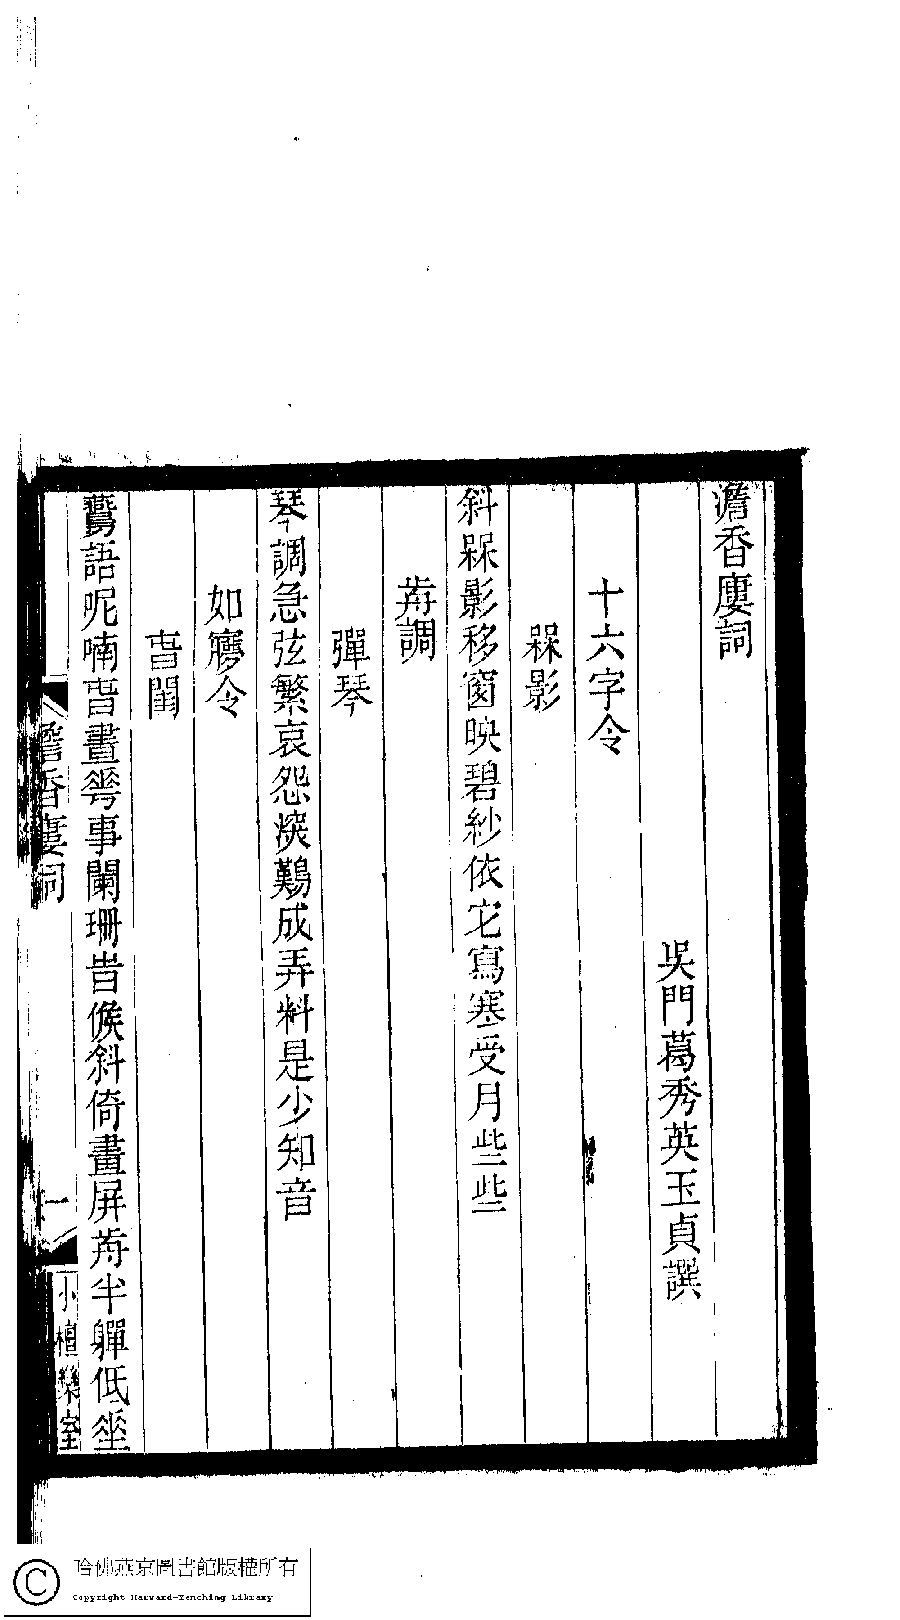 澹香廔詞
吳門葛秀英玉貞譔
十六字令
槑影
斜槑影移窗映碧紗依它寫塞受月些些
歬調
彈琴
琴調急弦繁哀怨湥鷬成弄料是少知音
如㝱令
旾閨
鸎語呢喃旾晝䔢事闌珊旹候斜倚畫屏歬半嚲低坐
澹香廔詞
一
小檀欒室
哈佛燕京圖書館版權所有
Copyright Harvard-Yenching Library